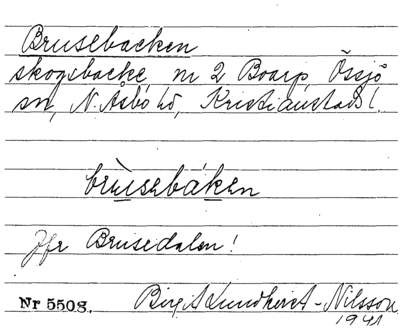 Brusebacken
skogsbacke nr 2 Boarp Össjö
sn, N. Åsbo hd, Kristianstads l.
brùsebáken
Jfr Brusedalen!
Nr 5508. Birgit Lundkvist-Nilsson
1941